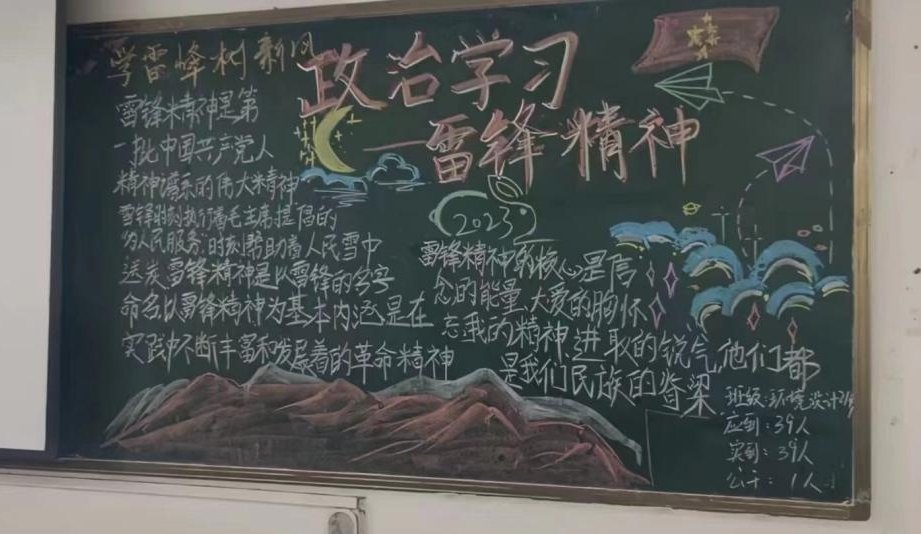 学雷峰树新风
政治学习
一雷锋精神
雷锋精神是第
一批中国共产党人
精神谱系的伟大精神
雷锋时刻执行着毛主席提倡的
为人民服务时刻帮助着人民雪中
送炭雷锋精神是以雷锋的名字
命名以雷锋精神为基本内涵是在
实践中不断丰富和发展着的革命精神
2023
雷锋精神的核心是信
念的能量、大爱的胸怀
忘我的精神、进取的锐气,他们都
是我们民族的脊梁
班级:环境设计
应到:39人
实到:39人
公干:1人